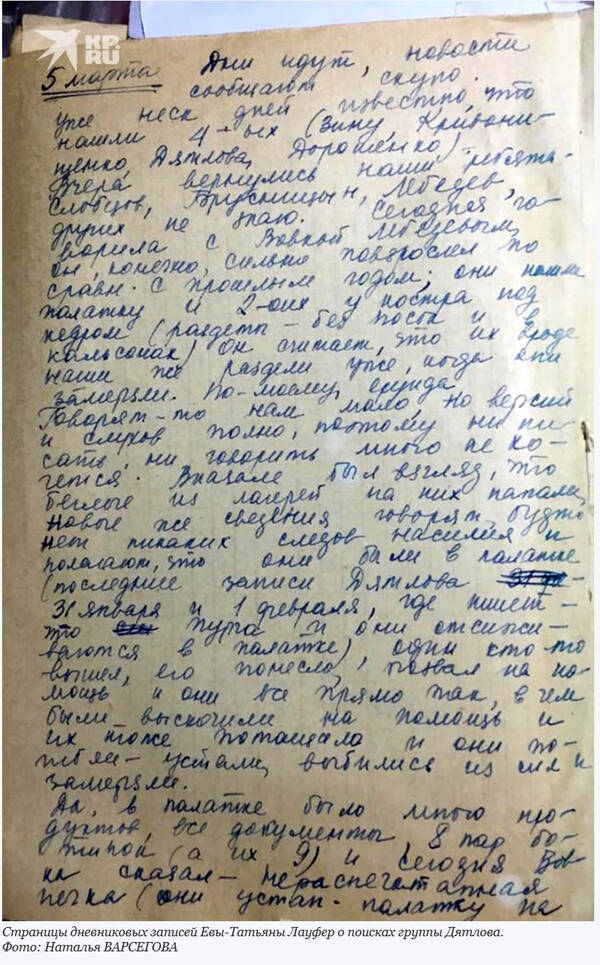 KP.RU
5 марта Дни идут, новости
сообщают скупо.
уже неск дней известно, что
нашли 4-ых (Зину, Кривони-
щенко, Дятлова, Дорошенко).
Вчера вернулись наши ребята
Слобцов, Брусницын, Лебедев,
других не знаю. Сегодня го-
ворила с Вовкой Лебедевым,
он, конечно, сильно повзрослел по
сравн. с прошлым годом; они нашли
палатку и 2-оих у костра под
кедром (раздеты - без носок и в
кальсонах) Он считает, что их вроде
наши же раздели уже, когда они
замерзли. По-моему, ерунда
Говорят-то нам мало, но версий
и слухов полно, поэтому ни пи-
сать, ни говорить много не хо-
чется. Вначале был взгляд, что
беглые из лагерей на них напали,
новые же сведения говорят, будто
нет никаких следов насилия и
полагают, что они были в палатке
(последние записи Дятлова
31 января и 1 февраля, где пишет-
что пурга и они отсижи-
ваются в палатке) один кто-то
вышел, его понесло, позвал на по-
мощь и они все прямо так, в чем
были - выскочили на помощь и
их тоже потащило и они по-
гибли - устали, выбились из сил и
замерзли.
Да, в палатке было много про-
дуктов, все документы, 8 пар бо-
тинок (а их 9) и сегодня Вов
ка сказал - нераспечатанная
печка (они устан. палатку на
Страницы дневниковых записей Евы-Татьяны Лауфер о поисках группы Дятлова.
Фото: Наталья ВАРСЕГОВА